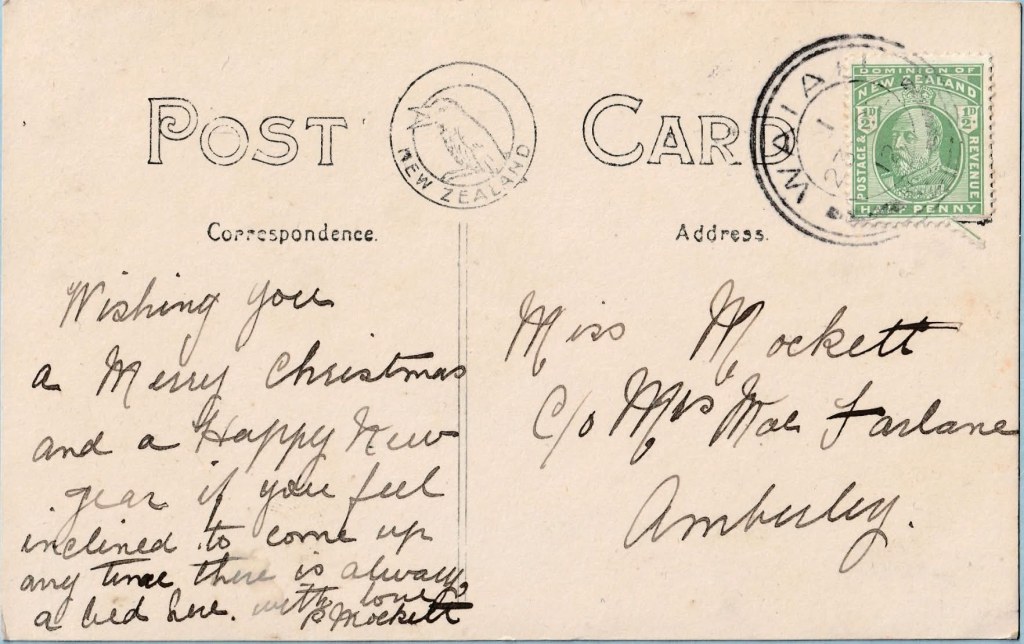 POST CARD
NEW ZEALAND
WAIAU
27
DOMINION OF
NEW ZEALAND
½D ½D
POSTAGE & REVENUE
HALF PENNY
Correspondence.
Address.
Wishing you
a Merry Christmas
and a Happy New
year if you feel
inclined to come up
any time there is always
a bed here. with love
B Mockett
Miss Mockett
c/o Mrs Mac Farlane
Amberley.